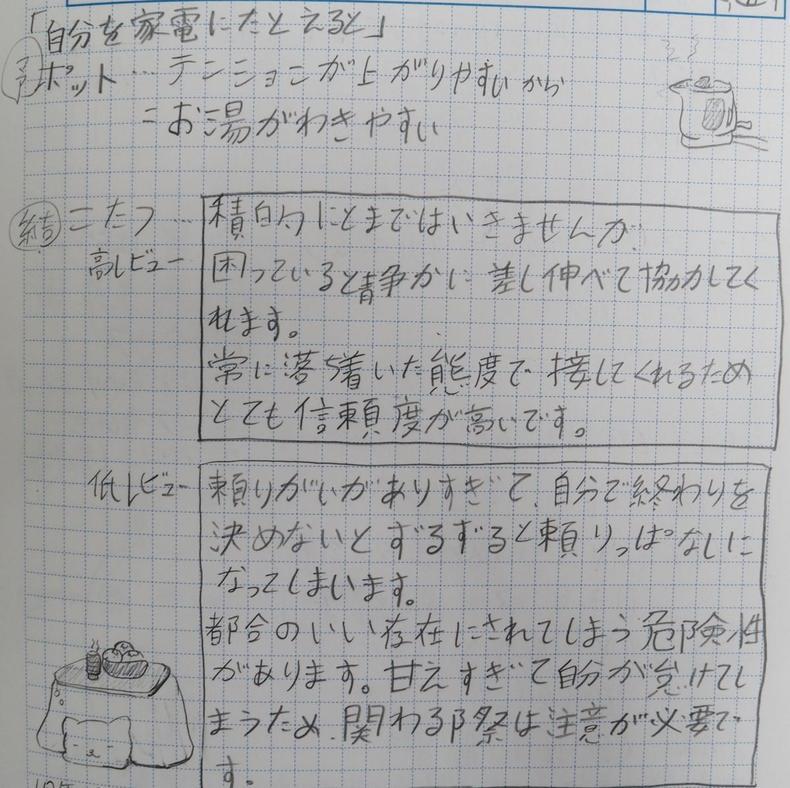 「自分を家電にたとえると」
ポット…テンションが上がりやすいから
=お湯がわきやすい
結 こたつ…
高レビュー
積的にとまではいきませんが
困っていると静かに差し伸べて協力してく
れます。
常に落ち着いた態度で接してくれるため
とても信頼度が高いです。
低レビュー
頼りがいがありすぎて、自分で終わりを
決めないとずるずると頼りっぱなしに
なってしまいます。
都合のいい存在にされてしまう危険性
があります。甘えすぎて自分が怠けてし
まうため、関わる際は注意が必要で
す。